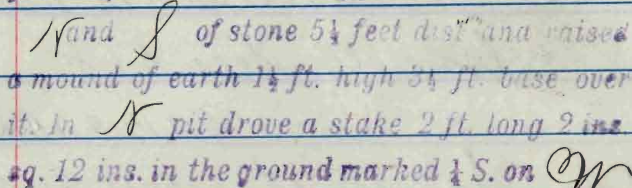 N and S of stone 5½ feet dist and raised
a mound of earth 1½ ft. high 3½ ft. base over
it. In N pit drove a stake 2 ft. long 2 ins.
sq. 12 ins. in the ground marked ¼ S. on W